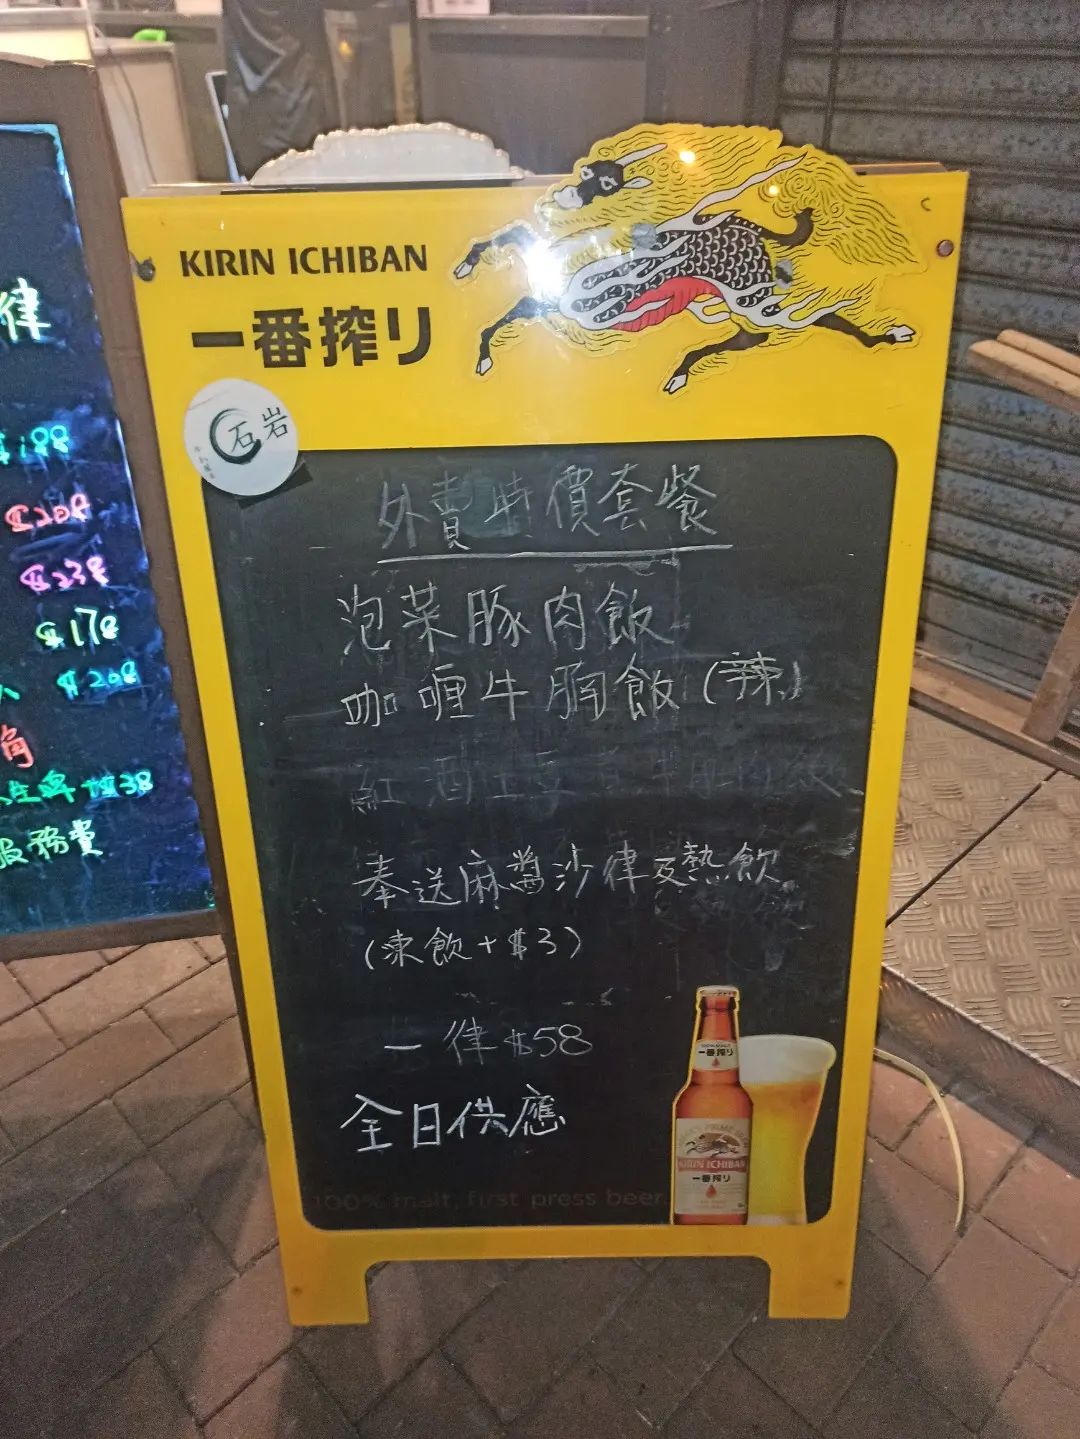 律
$188
$208
$238
$178
$208
角
生啤 +$38
服務費
KIRIN ICHIBAN
一番搾り
石岩
外賣特價套餐
泡菜豚肉飯
咖喱牛腩飯 (辣)
紅酒
奉送麻醬沙律及熱飲
(凍飲+$3)
一律$58
全日供應
100% malt, first press beer.
一番搾り
KIRIN ICHIBAN
一番搾り